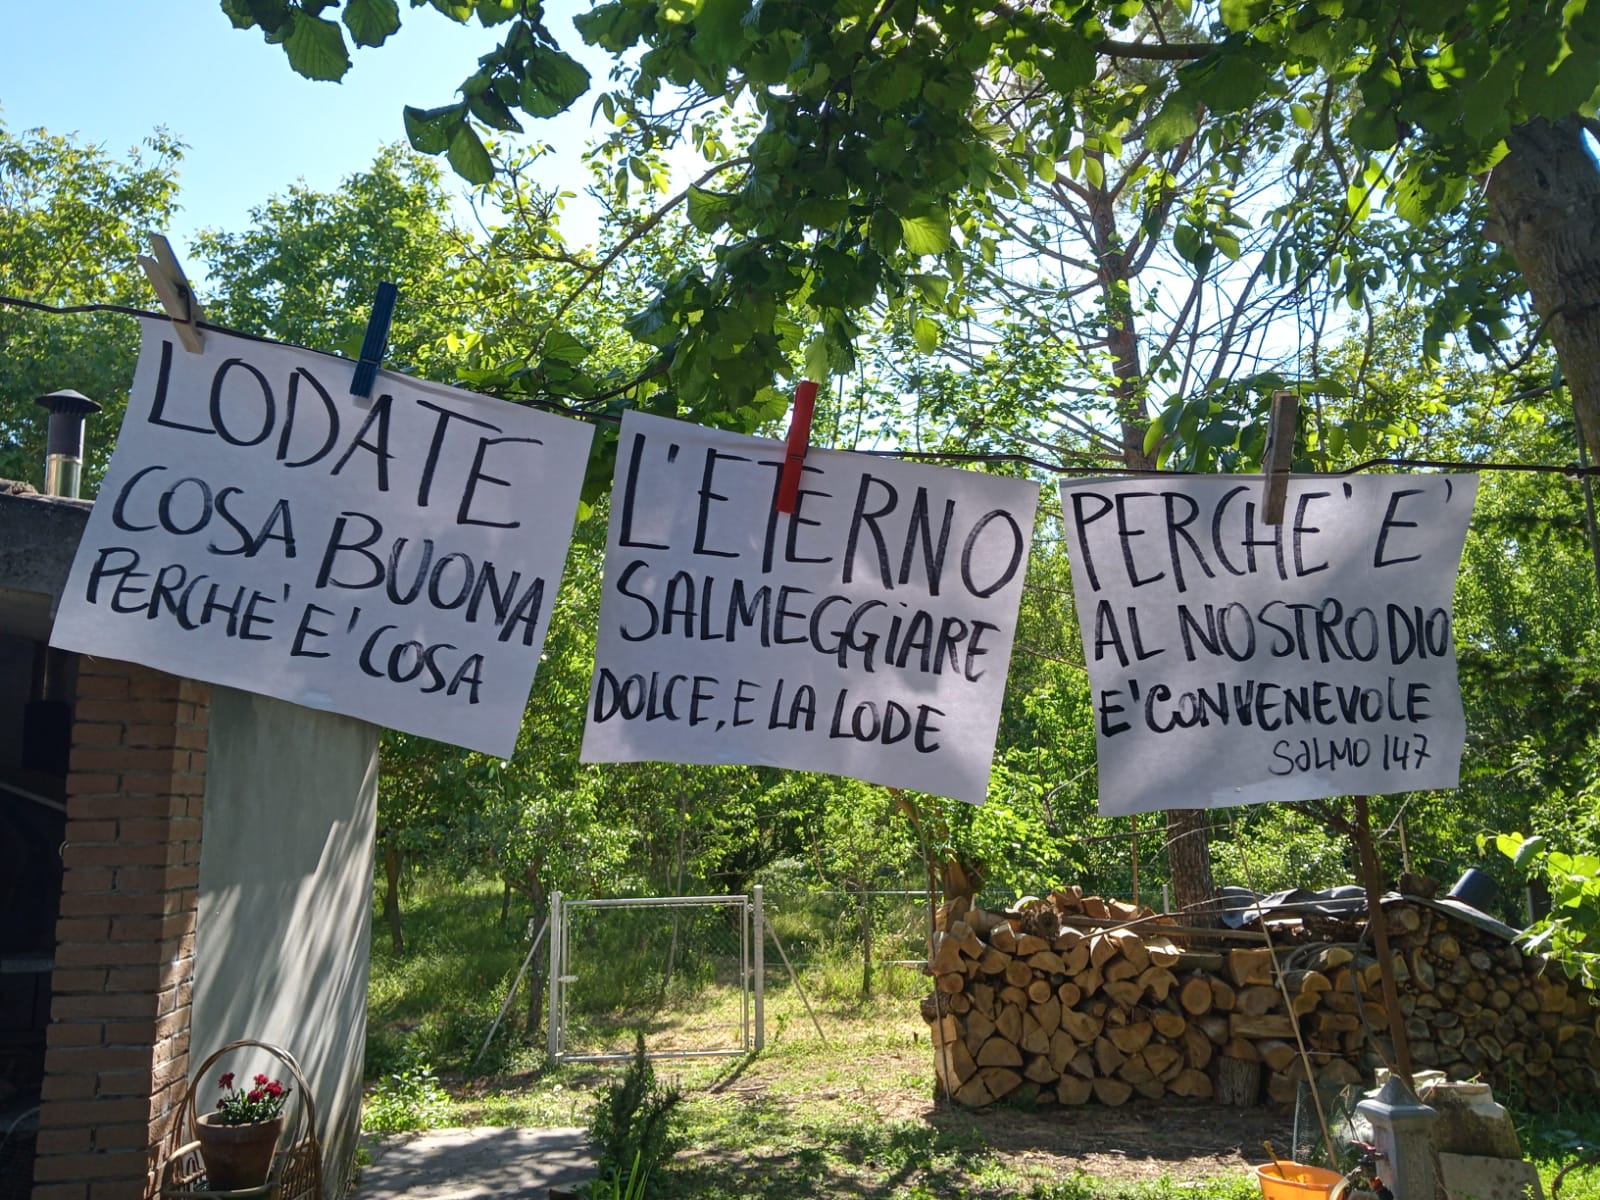 LODATE L'ETERNO PERCHE' E'
COSA BUONA SALMEGGiARE AL NOSTRO DIO
PERCHE' E' COSA DOLCE, E LA LODE E' CONVENEVOLE
SALMO 147